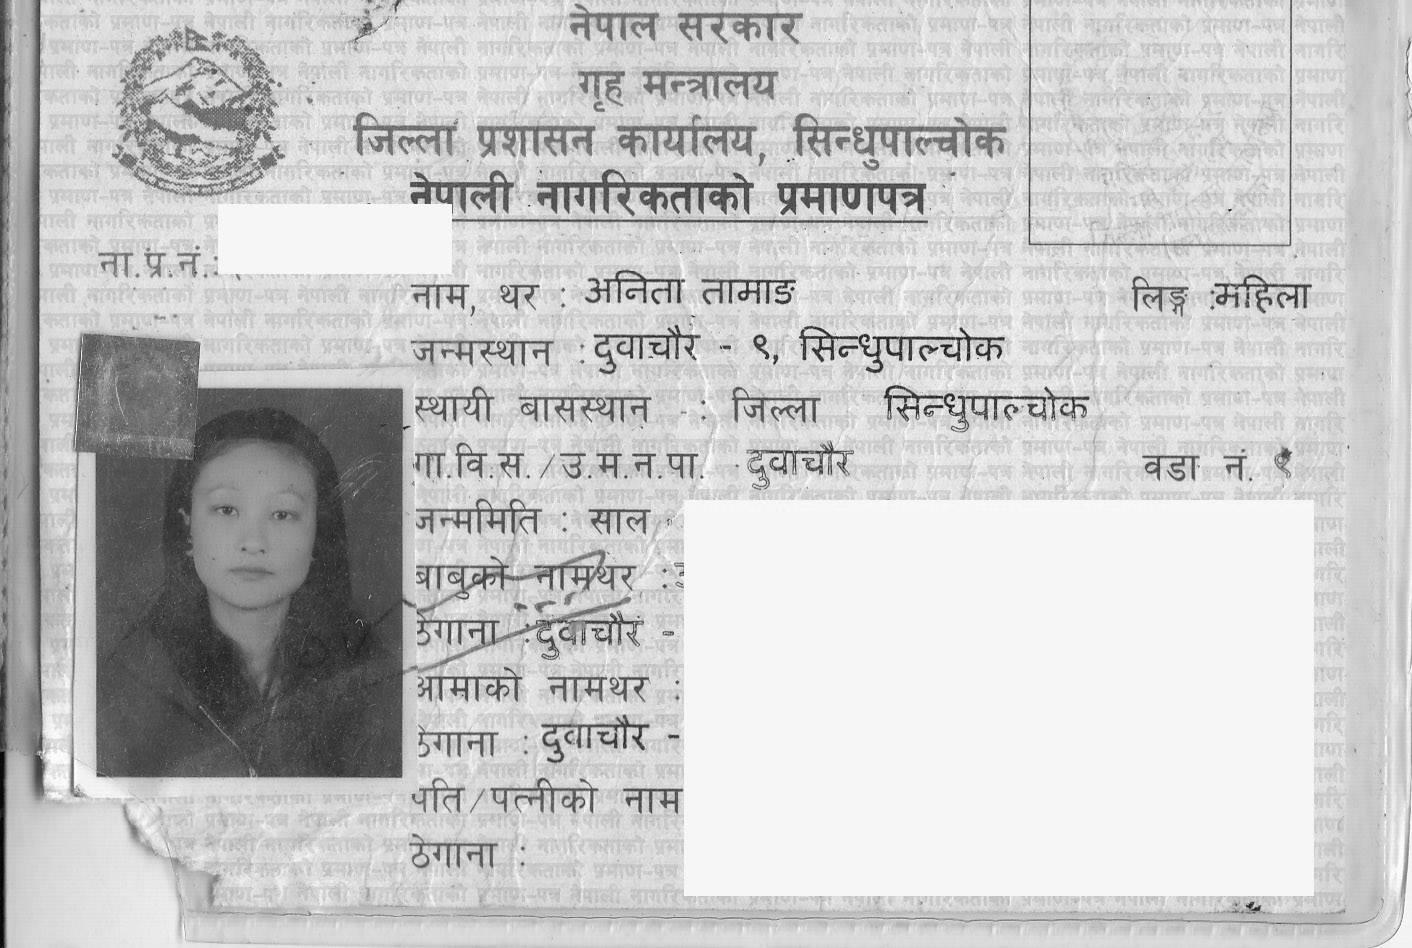 नेपाल सरकार
गृह मन्त्रालय
जिल्ला प्रशासन कार्यालय, सिन्धुपाल्चोक
नेपाली नागरिकताको प्रमाणपत्र
ना.प्र.नं.:
नाम, थर : अनिता तामाङ लिङ्ग :महिला
जन्मस्थान : दुवाचौर - ९, सिन्धुपाल्चोक
स्थायी बासस्थान : जिल्ला सिन्धुपाल्चोक
गा.वि.स./उ.म.न.पा. दुवाचौर वडा नं. ९
जन्ममिति : साल
बाबुको नामथर :
ठेगाना : दुवाचौर -
आमाको नामथर :
ठेगाना : दुवाचौर -
पति/पत्नीको नाम
ठेगाना :